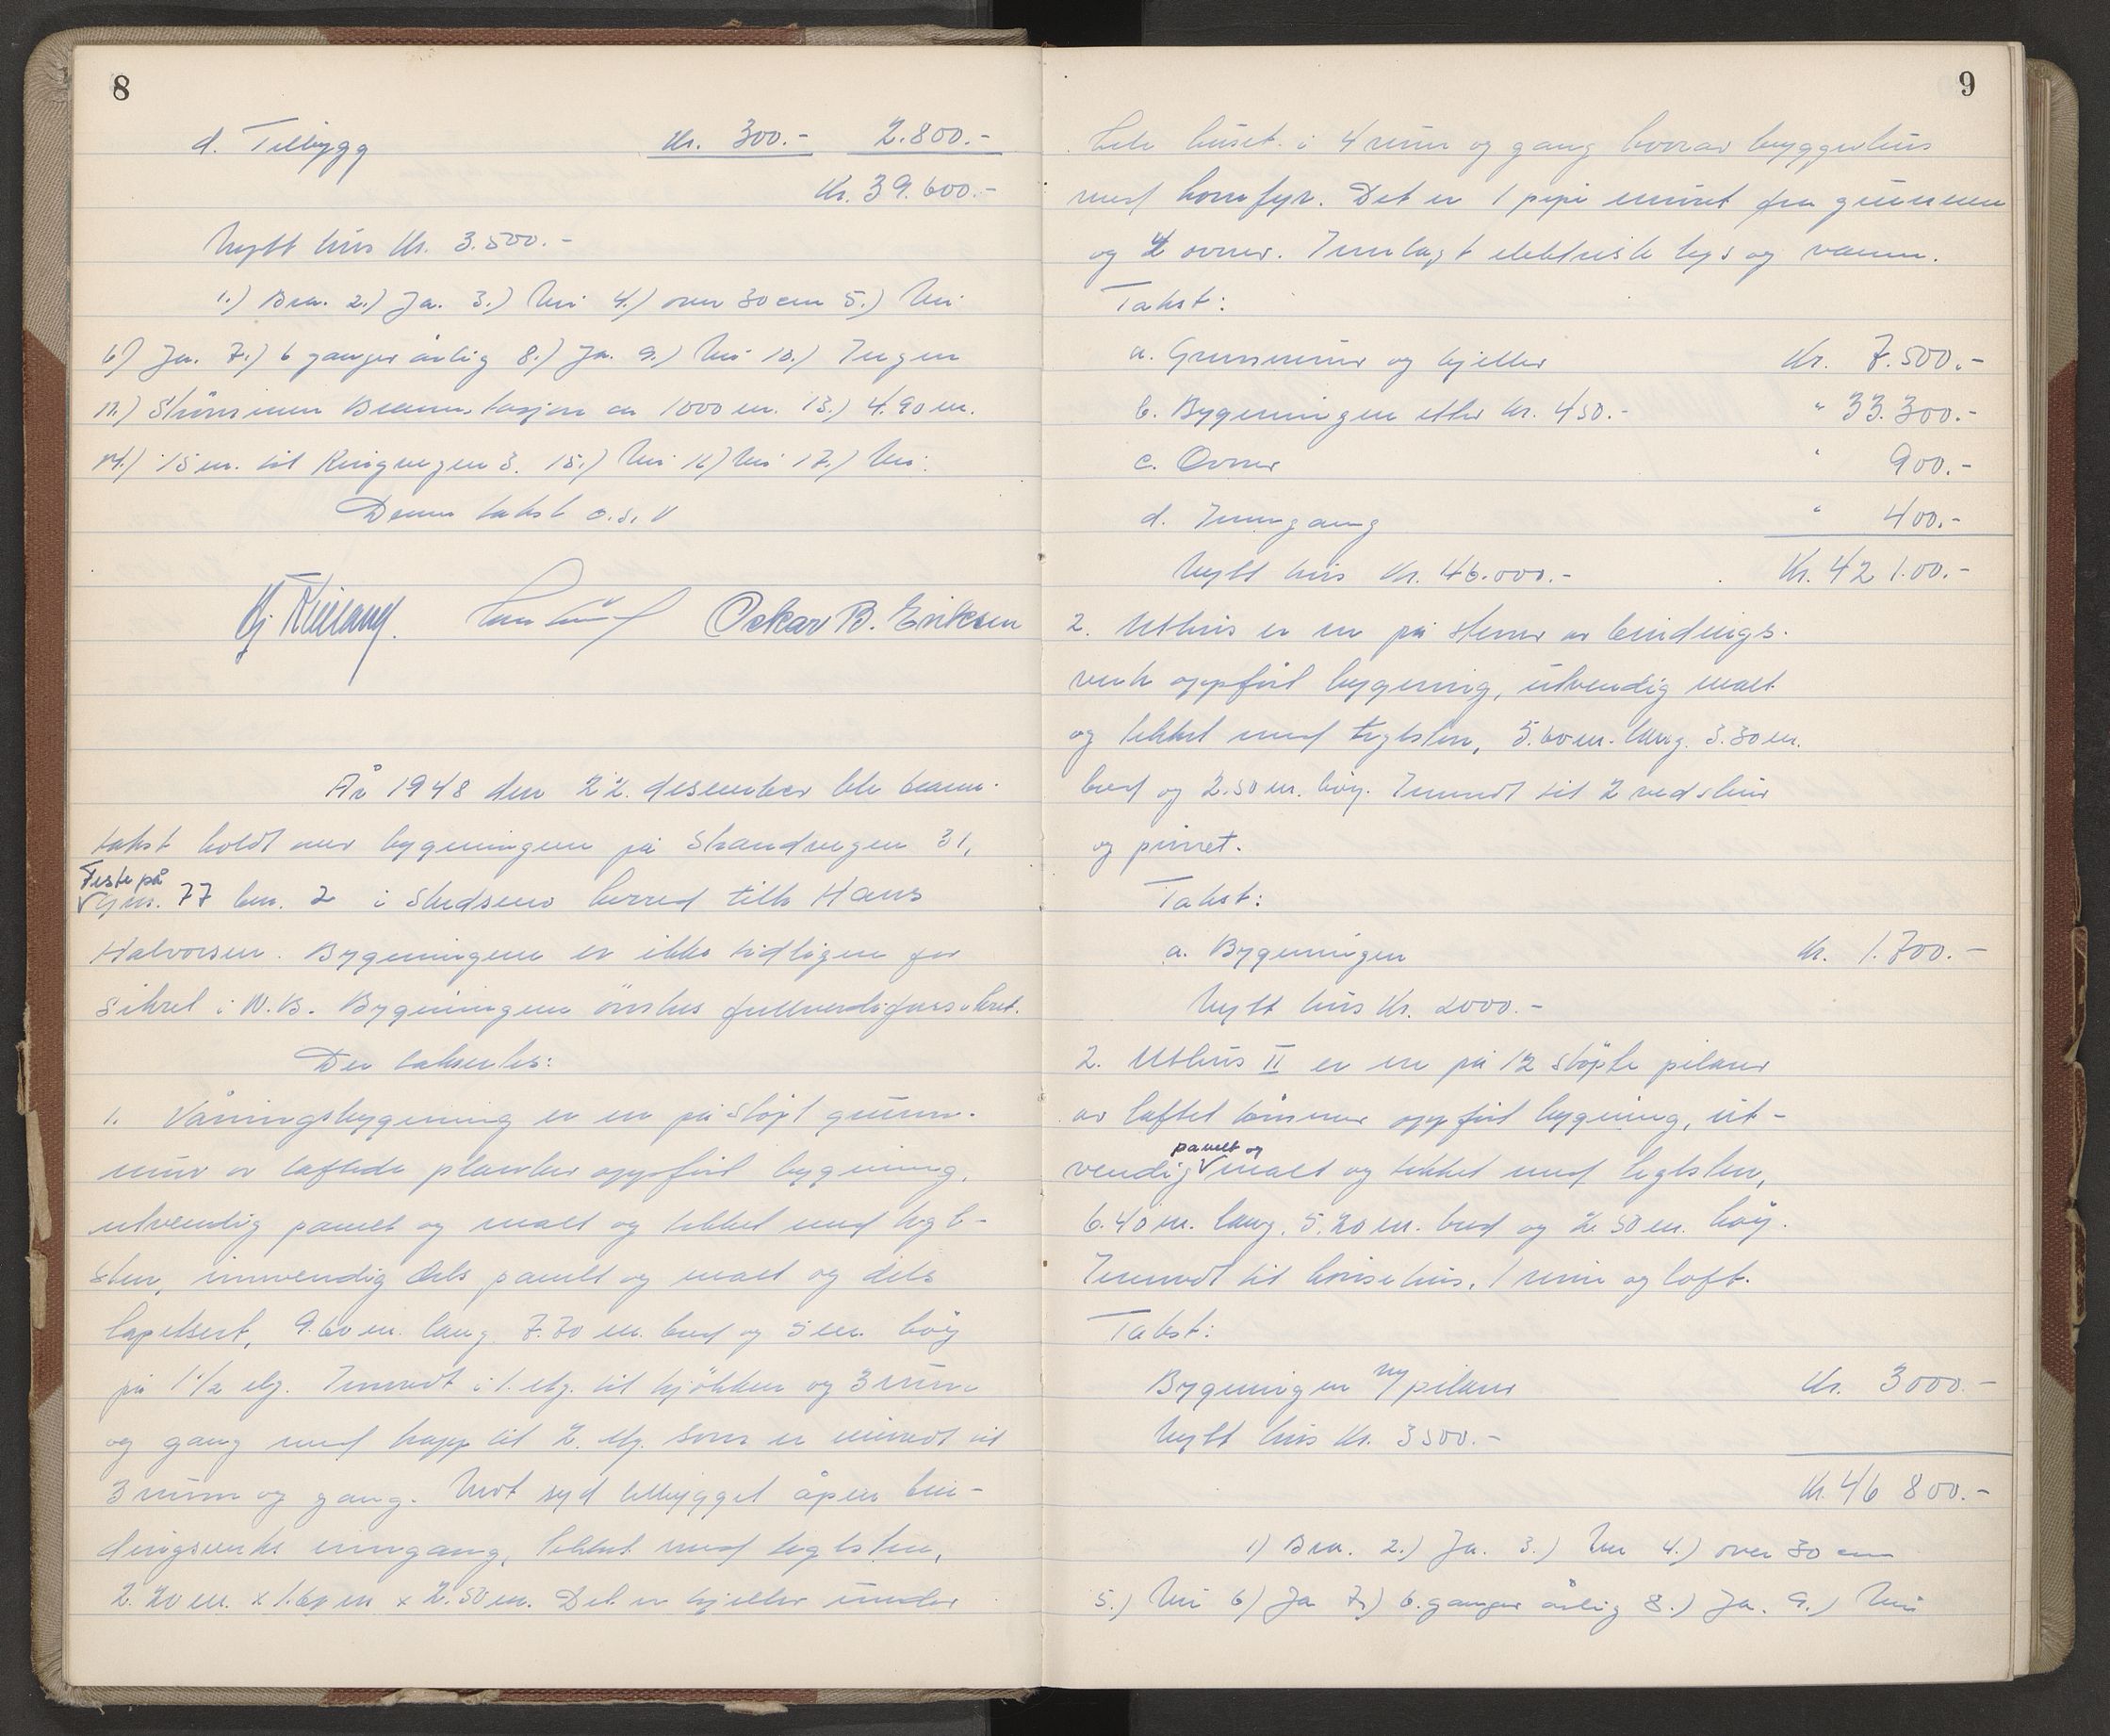 8
d. Tilbygg kr. 300.- 2.800.-
Kr. 39.600.-
Nytt hus kr. 3.500.-
1.) Bra. 2.) Ja. 3.) Nei 4.) over 30 cm 5.) Nei
6) Ja. 7.) 6 ganger årlig 8.) Ja. 9.) Nei 10.) Ingen
11.) Skien Brannstasjon ca 1000 m. 13.) 4.90 m.
14.) 15 m. til Ringvegen 3. 15.) Nei 16) Nei 17.) Nei.
Denne takst o.s.v
Oskar B. Eriksen
År 1948 den 22. desember ble brann-
takst holdt over bygningene på Strandvegen 31,
Feste på
gnr. 77 bnr. 2 i herred tilh. Hans
Halvorsen. Bygningene er ikke tidligere for
sikret i N.B. Bygningene ønskes fullverdiforsikret.
Der takseres:
1. Våningsbygning er en på støpt grunn-
mur av laftede planker oppført bygning,
utvendig panelt og malt og tekket med tegl-
sten, innvendig dels panelt og malt og dels
tapetsert, 9.60 m. lang 7.70 m. bred og 5 m. høy
på 1 1/2 etg. Innredt i 1. etg. til kjøkken og 3 rum
og gang med trapp til 2. etg. som er innredt til
3 rum og gang. Mot syd tilbygget åpen bin-
dingsverks inngang, tekket med teglsten,
2.20 m. x 1.60 m x 2.50 m. Det er kjeller under
9
hele huset i 4 rum og gang hvorav bryggerhus
med komfyr. Det er 1 pipe muret fra grunnen
og 4 ovner. Innlagt elektrisk lys og vann.
Takst:
a. Grunnmur og kjeller Kr. 7.500.-
b. Bygningen etter kr. 450.- " 33.300.-
c. Ovner " 900.-
d. Inngang " 400.-
Nytt hus kr. 46.000.- Kr. 42 100.-
2. Uthus er en på stener av bindings-
verk oppført bygning, utvendig malt
og tekket med teglsten, 5.60 m. lang. 3.30 m.
bred og 2.50 m. høy. Innredt til 2 vedskur
og privet.
Takst:
a. Bygningen Kr. 1.700.-
Nytt hus kr. 2000.-
2. Uthus II er en på 12 støpte pilarer
av laftet tømmer oppført bygning, ut-
panelt og
vendig malt og tekket med teglsten,
6.40 m. lang. 5.20 m. bred og 2.50 m. høy.
Innredt til hønsehus, 1 rum og loft.
Takst:
Bygningen m/pilarer Kr. 3000.-
Nytt hus kr. 3500.-
Kr. 46 800.-
1) Bra. 2.) Ja. 3.) Nei 4.) over 30 cm
5.) Nei 6) Ja 7.) 6 ganger årlig 8.) Ja. 9.) Nei